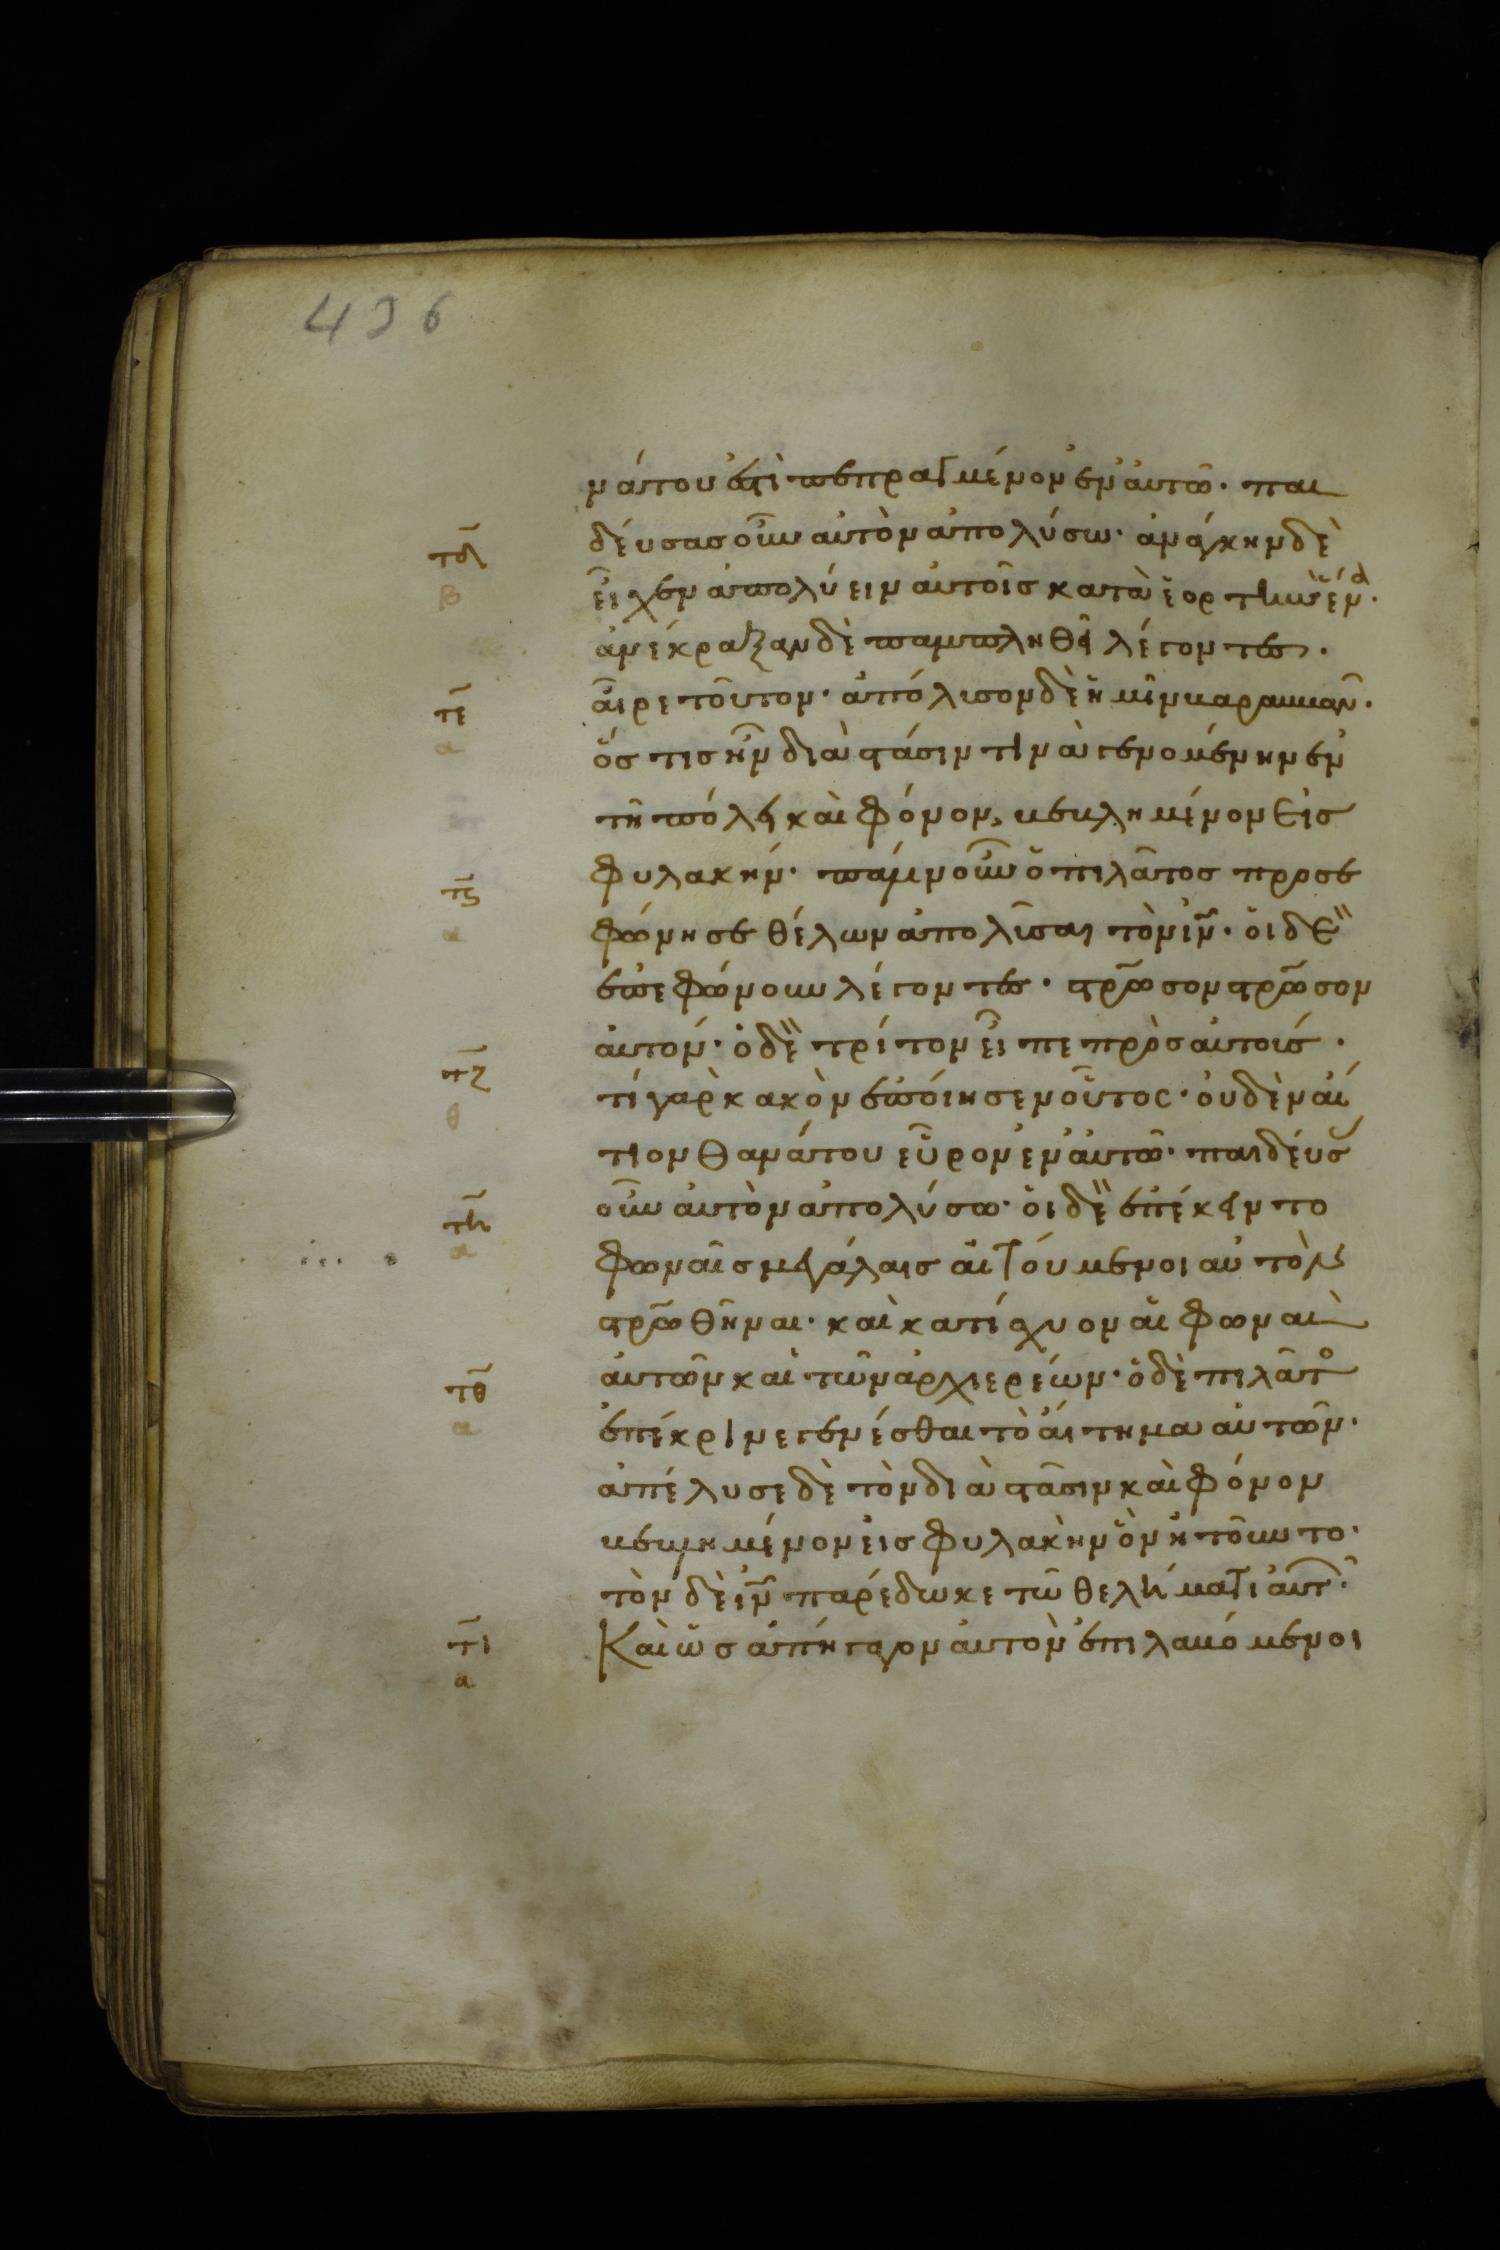 436
νάτου ἐστὶ πεπραγμένον ἐν ἀυτῶ· παι
δέυσας οὖν αὐτὸν ἀπολύσω· ἀνάγκην δὲ
τδ
β
εἶχεν ἀπολύειν αὐτοῖς κατὰ ἑορτὴν ἕνα·
ἀνέκραξαν δὲ παμπληθεὶ λέγοντες·
τε
α
αἶρε τοῦτον· ἀπόλυσον δὲ ἡμῖν βαραββαν·
ὅς τις ἦν διὰ στάσιν τινὰ γενομένην ἐν
τῆ πόλει καὶ φόνον, βεβλημένον εἰς
τς
α
φυλακήν· πάλιν οὖν ὁ πιλᾶτος προσε
φώνησε θέλων ἀπολῦσαι τὸν ιν· οἱ δὲ
ἐπεφώνουν λέγοντες· στρωσον στρωσον
αὐτόν· ὁ δὲ τρίτον εἶπε πρὸς αὐτούς·
τζ
θ
τί γὰρ κακὸν ἐποίησεν οὗτος· ὀυδὲν αἴ
τιον θανάτου εὗρον ἐν ἀυτῶ· παιδέυσας
οὖν ἀυτὸν ἀπολύσω· ὁι δὲ ἐπέκειντο
τη
α
φωναῖς μεγάλαις αἰτούμενοι αὐτὸν
στρωθῆναι· καὶ κατίσχυον αἱ φωναὶ
ἀυτῶν καὶ τῶν ἀρχιερέων· ὁ δὲ πιλᾶτος
τθ
α
ἐπέκρινε γενέσθαι τὸ ἀίτημα αὐτῶν·
ἀπέλυσε δὲ τὸν διὰ στάσιν καὶ φόνον
βεβλημένον εἰς φυλακὴν ὃν ἠτοῦντο·
τὸν δὲ ιν παρέδωκε τῶ θελήματι ἀυτῶν·
τι
α
Καὶ ὡς ἀπήγαγον ἀυτὸν ἐπιλαβόμενοι